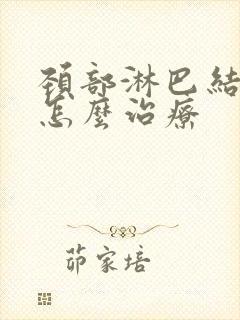 頸部淋巴結
怎麼治療
茆家培